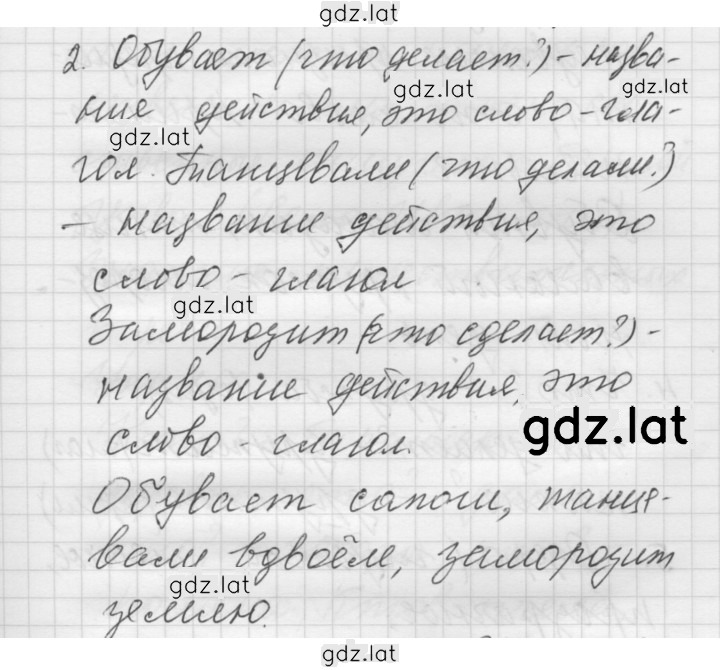 gdz.lat
2. Обувает (что делает?) - назва-
gdz.lat
ние действия, это слово - гла-
gdz.lat
гол. Танцевали (что делали?)
- название действия, это
слово - глагол
gdz.lat
Заморозит (что сделает?) -
название действия, это
gdz.lat
слово - глагол.
Обувает сапоги, танце-
вали вдвоём, заморозит
gdz.lat
землю.
gdz.lat